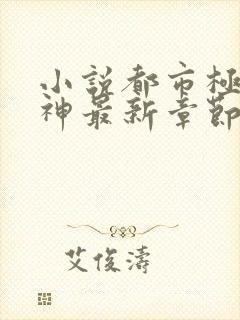 小說都市極
神最新章節
艾俊濤